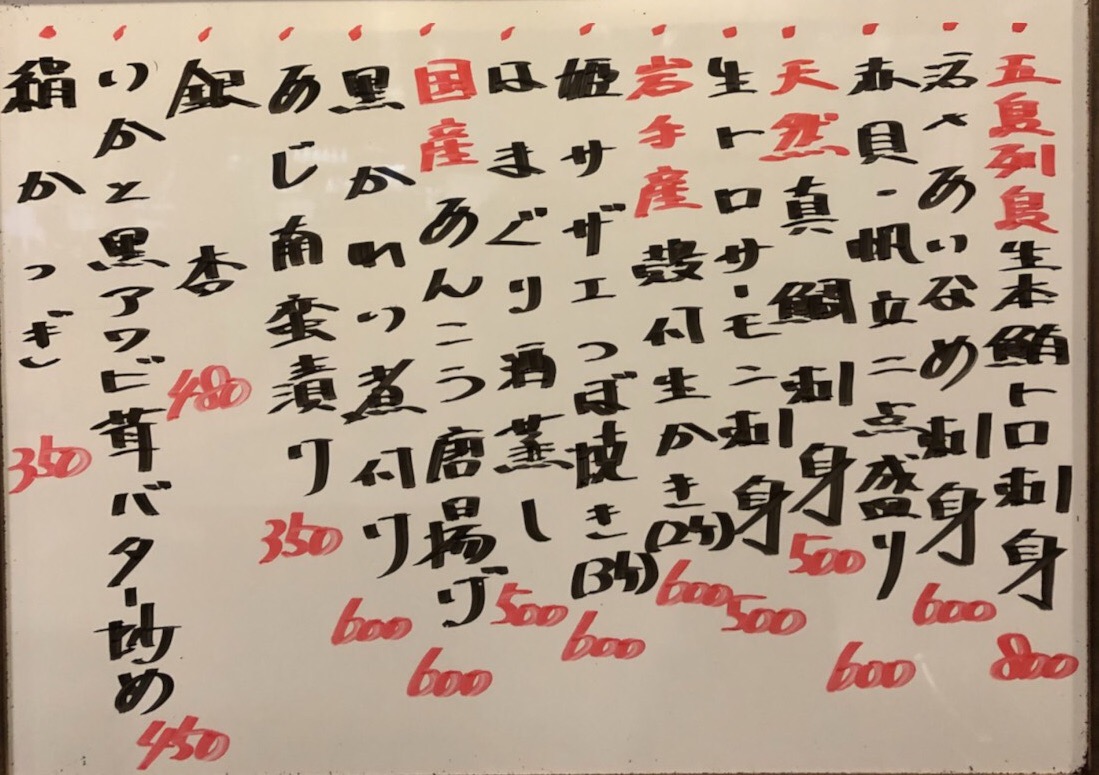 五島列島生本鮪トロ刺身 800
活〆あいなめ刺身 600
赤貝・帆立二点盛り 600
天然真鯛刺身 500
生トロサーモン刺身 500
岩手産殻付生かき(2ケ) 600
姫サザエつぼ焼き(3ケ) 600
はまぐり酒蒸し 500
国産あんこう唐揚げ 600
黒かれい煮付け 600
あじ南蛮漬け 350
銀杏 480
いかと黒アワビ茸バター炒め 450
絹かつぎ 350